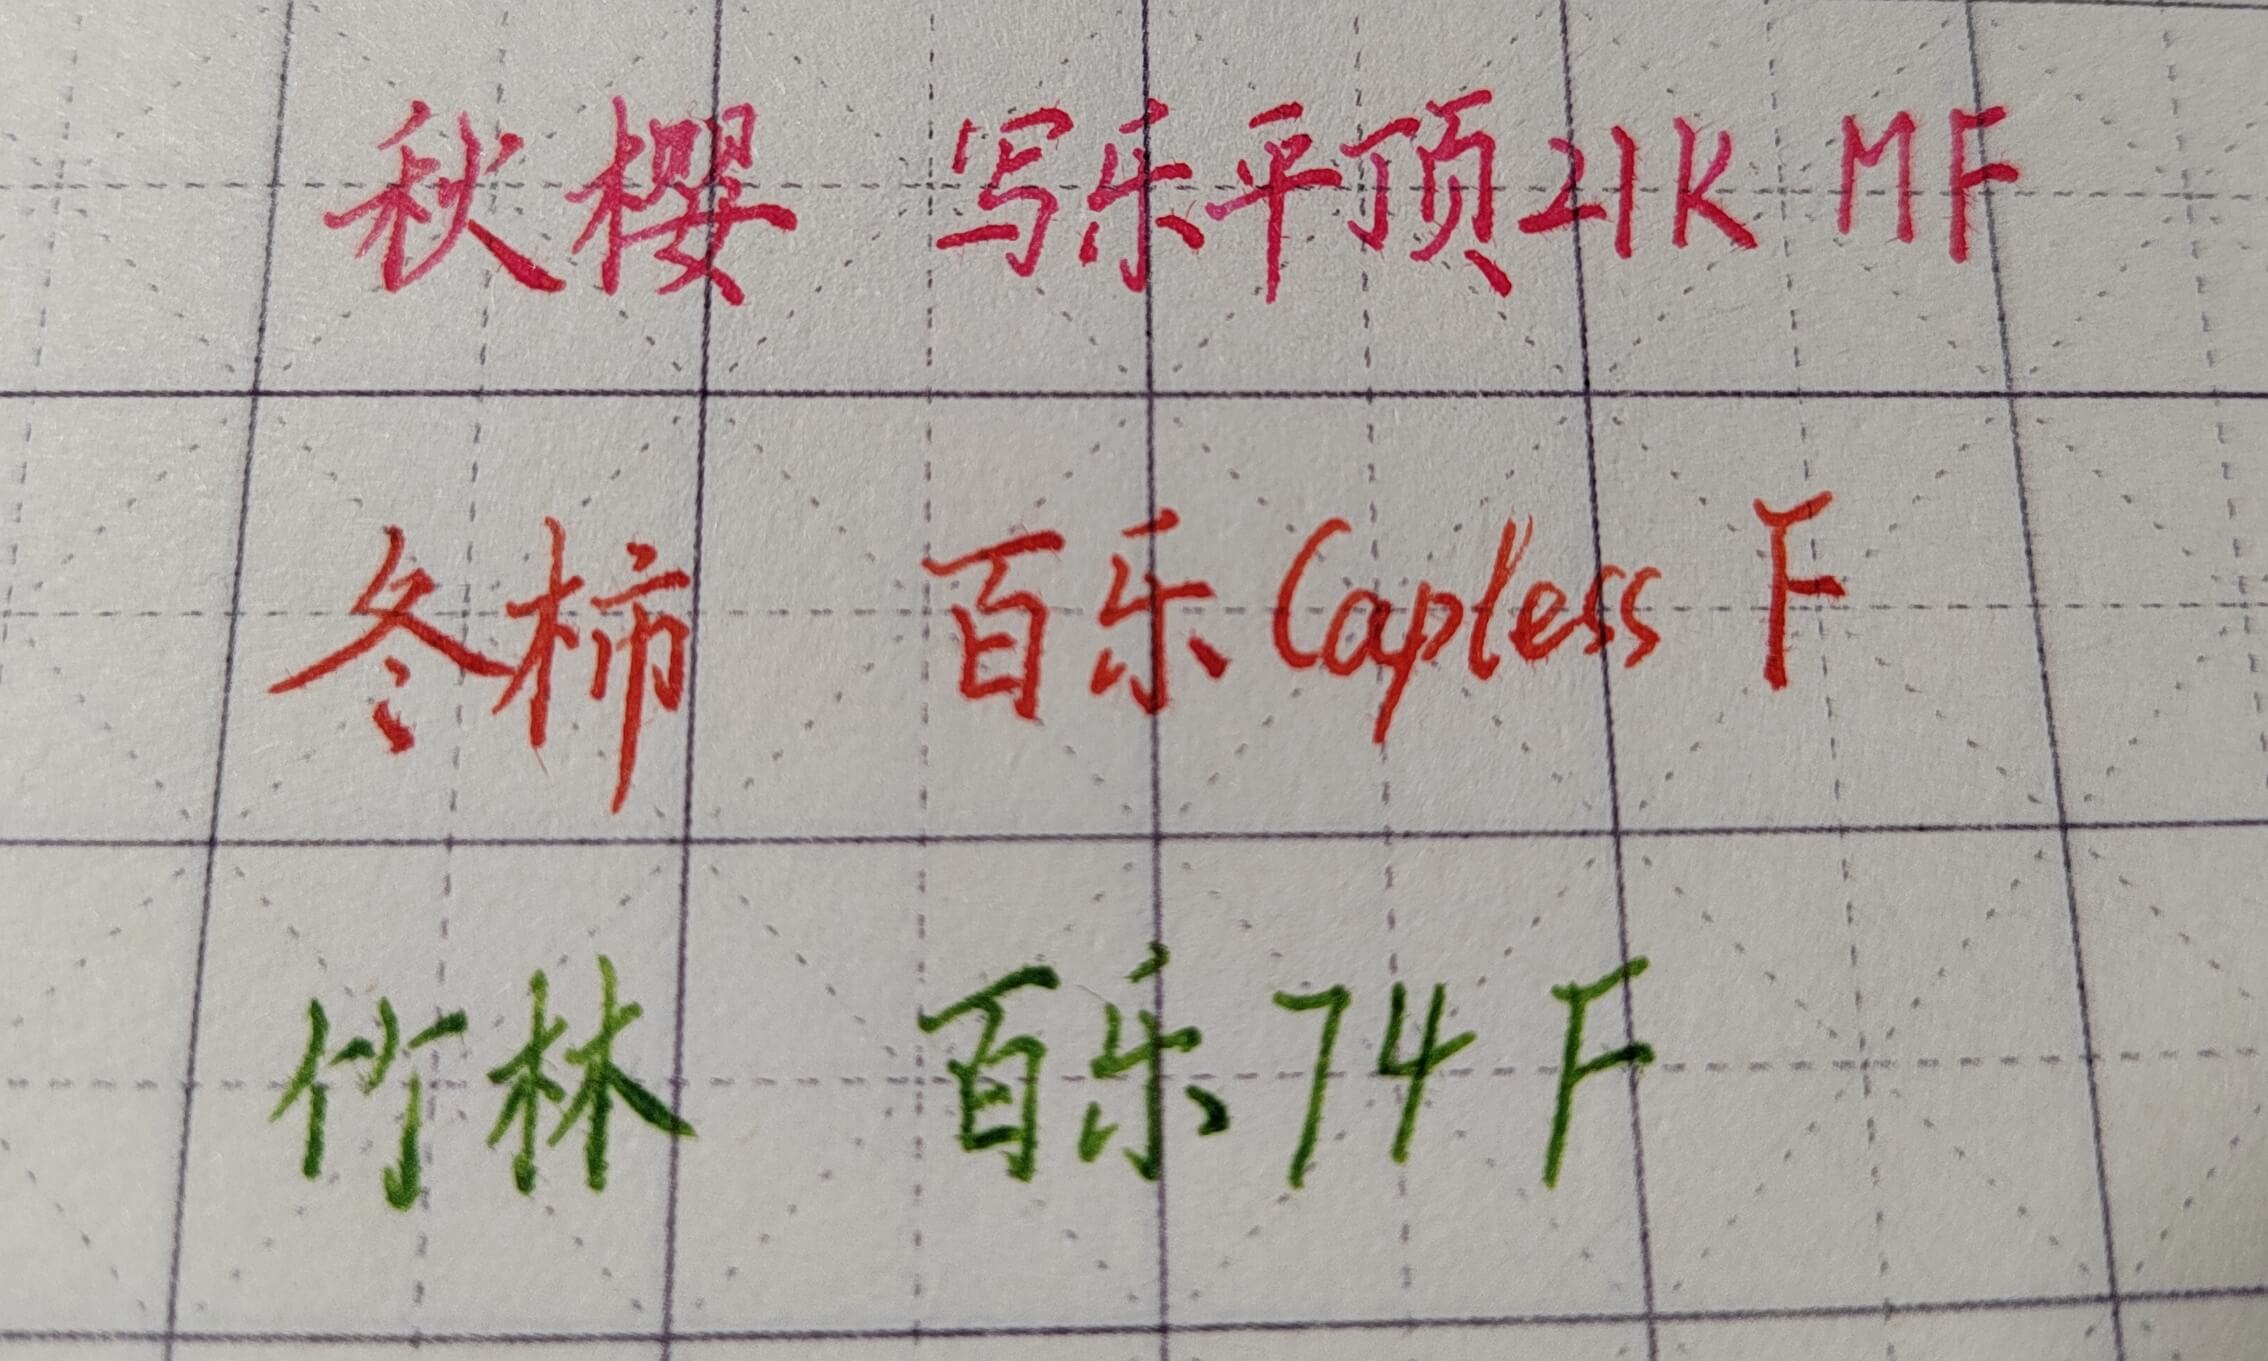 秋樱 写乐平顶21K MF
冬柿 百乐Capless F
竹林 百乐74 F